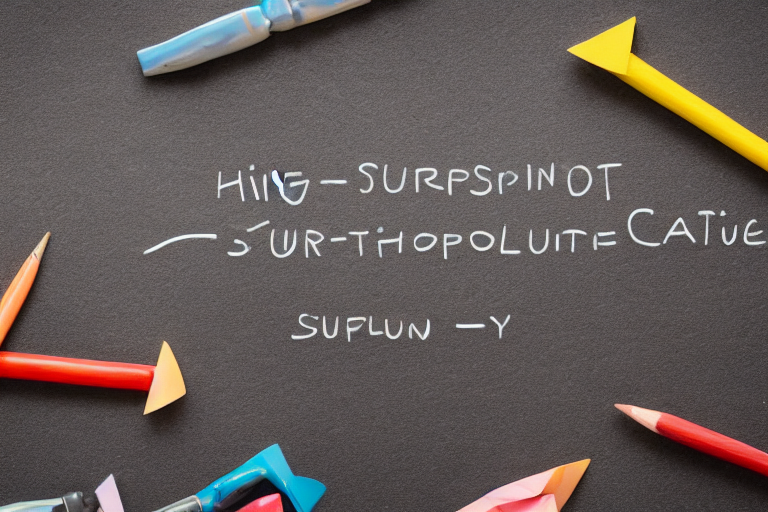 HiNG-SURPSPINOT
SUR-THOPOLUITE CATiVE
SUFLUN -Y